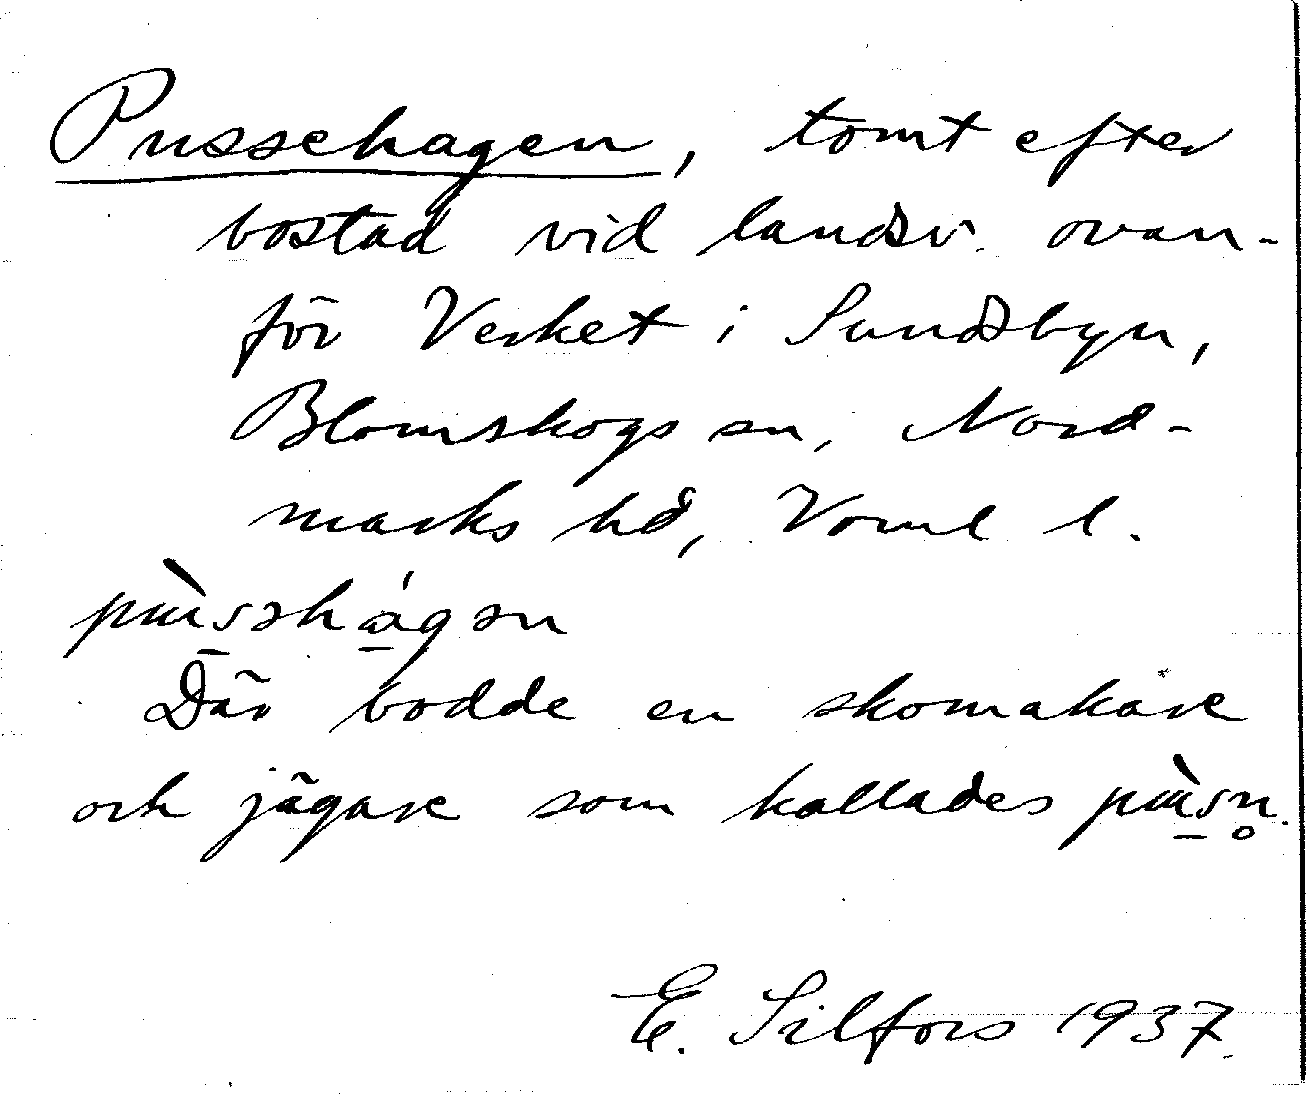 Pussehagen, tomt efter
bostad vid landsv. ovan-
för Verket i Sundsbyn,
Blomskogs sn, Nord-
marks hd, Verml l.
Där bodde en skomakare
och jägare som kallades
E. Silfors 1937.